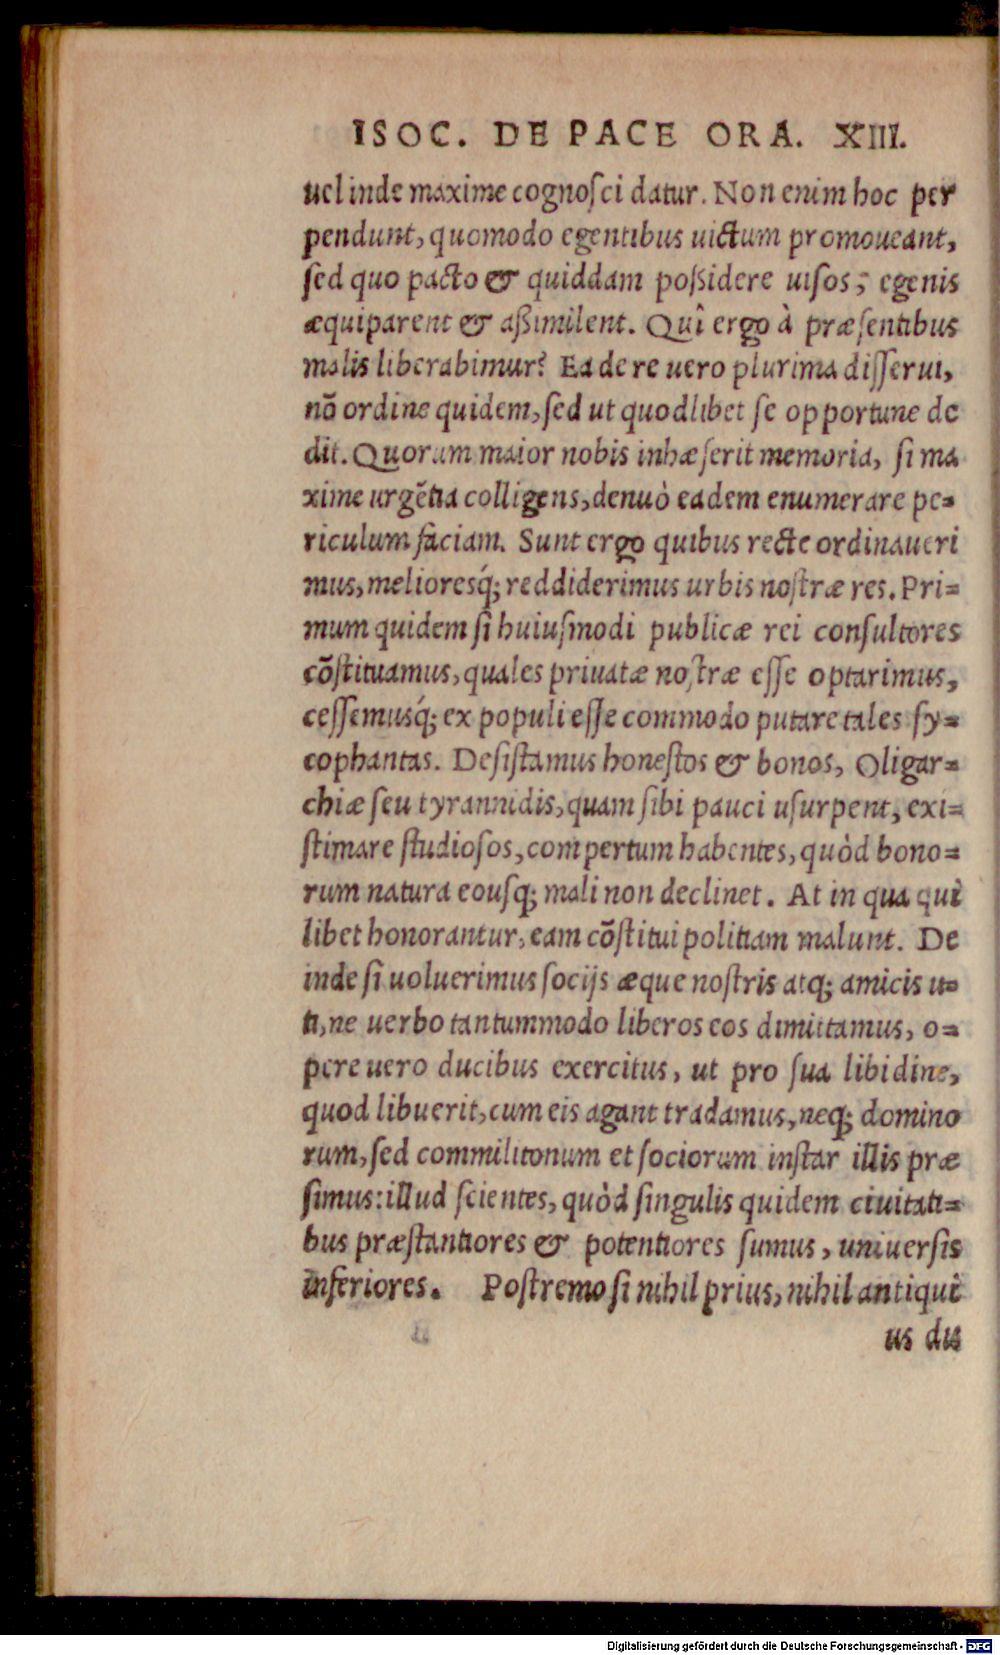 ISOC. DE PACE ORA. XIII.
uel inde maxime cognoſci datur. Non enim hoc per
pendunt, quomodo egentibus uictum promoueant,
ſed quo pacto & quiddam poßidere uiſos; egenis
æquiparent & aßimilent. Quî ergo à præſentibus
malis liberabimur? Ea de re uero plurima diſſerui,
nō ordine quidem, ſed ut quodlibet ſe opportune de
dit. Quorum maior nobis inhæſerit memoria, ſi ma
xime urgētia colligens, denuò eadem enumerare pe=
riculum faciam. Sunt ergo quibus recte ordinaueri
mus, melioresq́; reddiderimus urbis noſtræ res. Pri=
mum quidem ſi huiuſmodi publicæ rei conſultores
cōſtituamus, quales priuatæ noſtræ eſſe optarimus,
ceſſemusq́; ex populi eſſe commodo putare tales ſy=
cophantas. Deſiſtamus honeſtos & bonos, Oligar=
chiæ ſeu tyrannidis, quam ſibi pauci uſurpent, exi=
ſtimare ſtudioſos, compertum habentes, quòd bono=
rum natura eouſq; mali non declinet. At in qua qui
libet honorantur, eam cōſtitui politiam malunt. De
inde ſi uoluerimus ſocijs æque noſtris atq; amicis u=
ti, ne uerbo tantummodo liberos eos dimittamus, o=
pere uero ducibus exercitus, ut pro ſua libidine,
quod libuerit, cum eis agant tradamus, neq; domino
rum, ſed commilitonum et ſociorum inſtar illis præ
ſimus: illud ſcientes, quòd ſingulis quidem ciuitati=
bus præſtantiores & potentiores ſumus, uniuerſis
inferiores. Poſtremo ſi nihil prius, nihil antiqui
us du
Digitalisierung gefördert durch die Deutsche Forschungsgemeinschaft - DFG